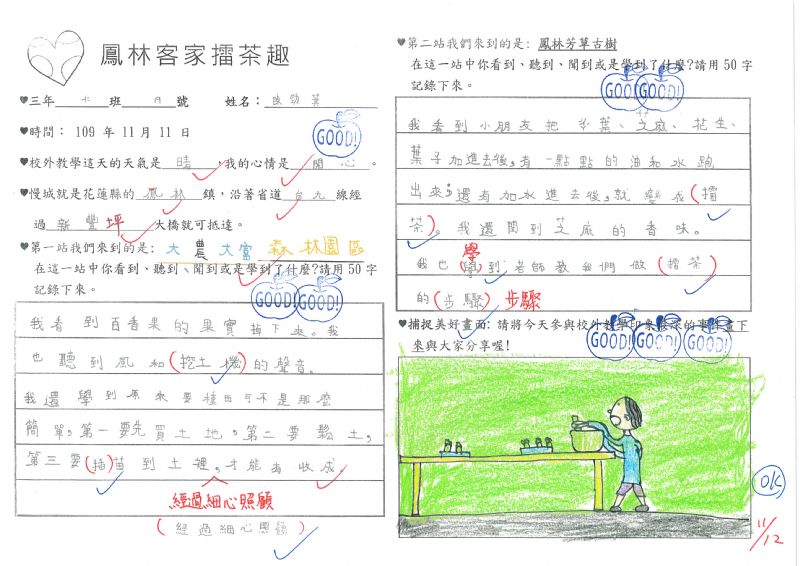 鳳林客家擂茶趣
♥三年 六 班 月 號 姓名:
GOOD!
♥時間: 109 年 11 月 11 日
♥校外教學這天的天氣是 晴 ,我的心情是 開心 。
♥慢城就是花蓮縣的 鳳林 鎮,沿著省道 台九 線經
過 新豐坪 大橋就可抵達。
♥第一站我們來到的是: 大農大富森林園區
在這一站中你看到、聽到、聞到或是學到了什麼?請用 50 字
記錄下來。
GOOD! GOOD!
我看到百香果的果實掉下來。我
也聽到風和(挖土機)的聲音。
我還學到原來要種田可不是那麼
簡單,第一要先買土地,第二要鬆土,
第三要(插)苗到土裡,才能有收成
經過細心照顧
(經過細心照顧)
♥第二站我們來到的是: 鳳林芳草古樹
在這一站中你看到、聽到、聞到或是學到了什麼?請用 50 字
記錄下來。
GOOD! GOOD!
我看到小朋友把茶葉、芝麻、花生、
葉子加進去後,有一點點的油和水跑
出來;還有加水進去後,就變成(擂
茶)。我還聞到芝麻的香味。
學
我也(學)到老師教我們做(擂茶)
的(步驟) 步驟
♥捕捉美好畫面: 請將今天參與校外教學印象最深的事件畫下
來與大家分享喔!
GOOD! GOOD! GOOD!
OK
11/12